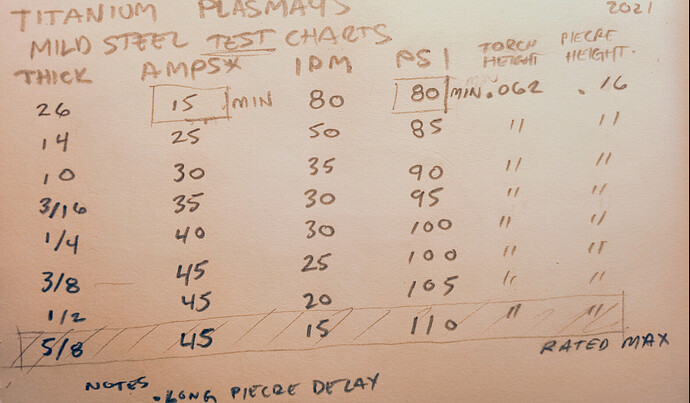 TITANIUM PLASMA45 2021
MILD STEEL TEST CHARTS
THICK AMPSX IPM PSI TORCH HEIGHT PIECRE HEIGHT.
26 15 MIN 80 80 MIN .062 .16
14 25 50 85 " "
10 30 35 90 " "
3/16 35 30 95 " "
1/4 40 30 100 " "
3/8 45 25 100 " "
1/2 45 20 105 " "
5/8 45 15 110 " "
RATED MAX
NOTES
. LONG PIECRE DELAY